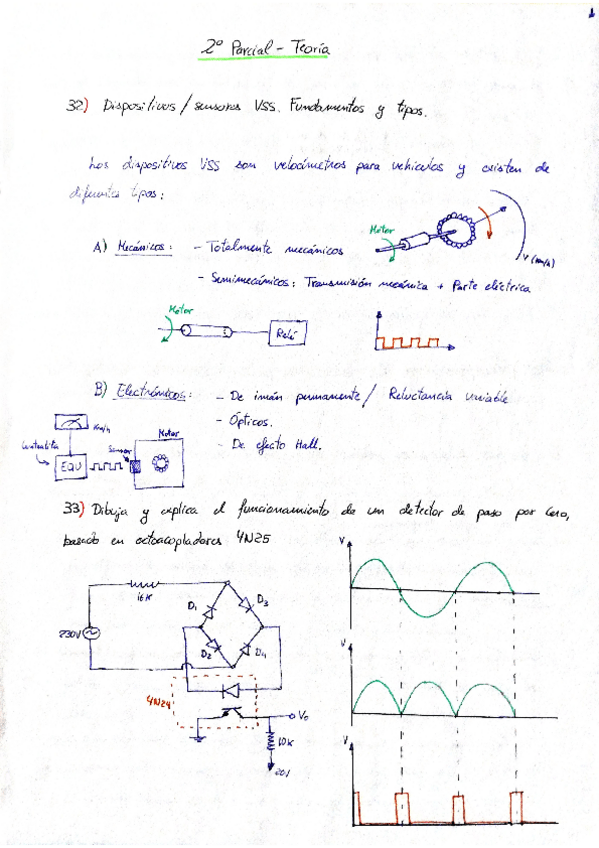 1
2º Parcial - Teoría
32) Dispositivos / sensores VSS. Fundamentos y tipos.
Los dispositivos VSS son velocímetros para vehículos y existen de
diferentes tipos:
Motor
V (km/h)
A) Mecánicos: - Totalmente mecánicos
- Semimecánicos: Transmisión mecánica + Parte eléctrica
Motor
Relé
B) Electrónicos: - De imán permanente / Reluctancia variable
- Ópticos.
- De efecto Hall.
Km/h
Centralita
ECU
Sensor
Motor
33) Dibuja y explica el funcionamiento de un detector de paso por cero,
basado en octoacopladores 4N25
16K
230V
D1
D3
D2
D4
4N24
Vo
10K
20V
V
V
V